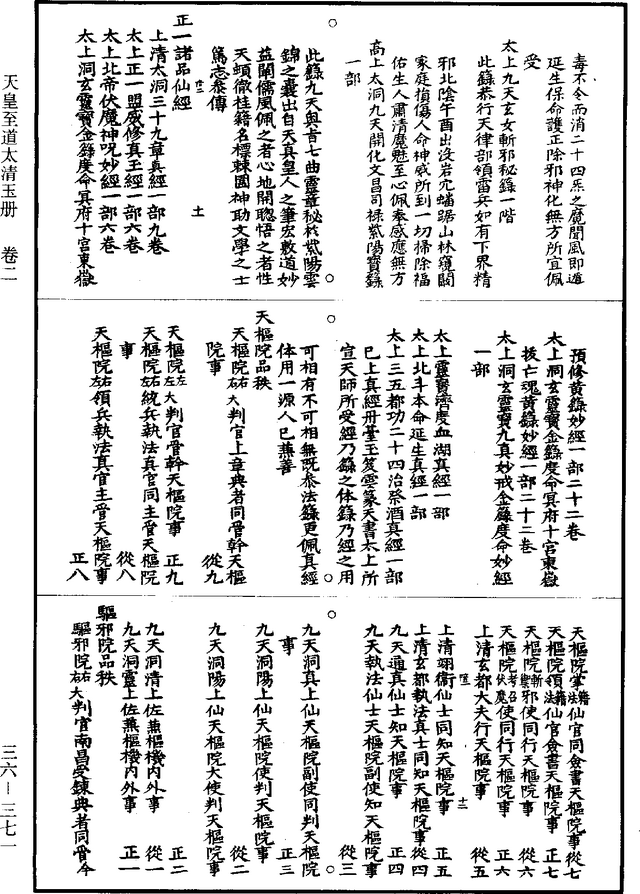 毒不令而消二十四炁之魔聞風即遁
延生保命護正除邪神化無方所宜佩
受
太上九天玄女斬邪秘籙一階
此籙恭行天律部領雷兵如有下界精
邪北陰午酉出沒岩穴蟠踞山林窺闞
家庭損傷人命神威所到一切掃除福
佑生人肅清魔魅至心佩奉感應無方
高上太洞九天開化文昌司祿紫陽寶籙
一部
此籙九天輿旨七曲靈章秘於紫陽雲
錦之囊出自天真皇人之筆宏敷道妙
益闡儒風佩之者心地開聰悟之者性
天頴徹桂籍名標棘圍神助文學之士
篤志泰傳
正一諸品仙經
上清太洞三十九章真經一部九卷
太上正一盟威修真玉經一部六卷
太上北帝伏魔神呪妙經一部六卷
太上洞玄靈寶金籙度命冥府十宮東嶽
預修黃籙妙經一部二十二卷
太上洞玄靈寶金籙度命冥府十宮東嶽
拔亡魂黃籙妙經一部二十二卷
太上洞玄靈寶九真妙戒金籙度命妙經
一部
太上靈寶濟度血湖真經一部
太上北斗本命延生真經一部
太上三五都功二十四治祭酒真經一部
已上真經冊蕋玉笈雲篆天書太上所
宣天師所受經乃籙之体籙乃經之用
可相有不可相無既叅法籙更佩真經
体用一源人已兼善
天樞院品秩
天樞院左右大判官上章典者同管幹天樞
院事 從九
天樞院左右大判官管幹天樞院事 正九
天樞院左右統兵執法真官同主管天樞院
事 從八
天樞院左右領兵執法真官主管天樞院事 正八
天樞院掌籍掌法仙官同僉書天樞院事 從七
天樞院領籍領法仙官僉書天樞院事 正七
天樞院斬邪使同行天樞院事 從六
天樞院考召伏魔使同行天樞院事 正六
上清玄都大夫行天樞院事 從五
上清翊衛仙士同知天樞院事 正五
上清玄都執法真士同知天樞院事 從四
九天通真仙士知天樞院事 正四
九天執法仙士天樞院副使知天樞院事 從三
九天洞真上仙天樞院副使同判天樞院
事 正三
九天洞陽上仙天樞院使判天樞院事 從二
九天洞陽上仙天樞院大使判天樞院事 正二
九天洞清上佐兼樞機內外事 從一
九天洞靈上佐兼樞機內外事 正一
驅邪院品秩
驅邪院左右大判官南昌受鍊典者同管今
天皇至道太清玉册 卷二
三六—三七一